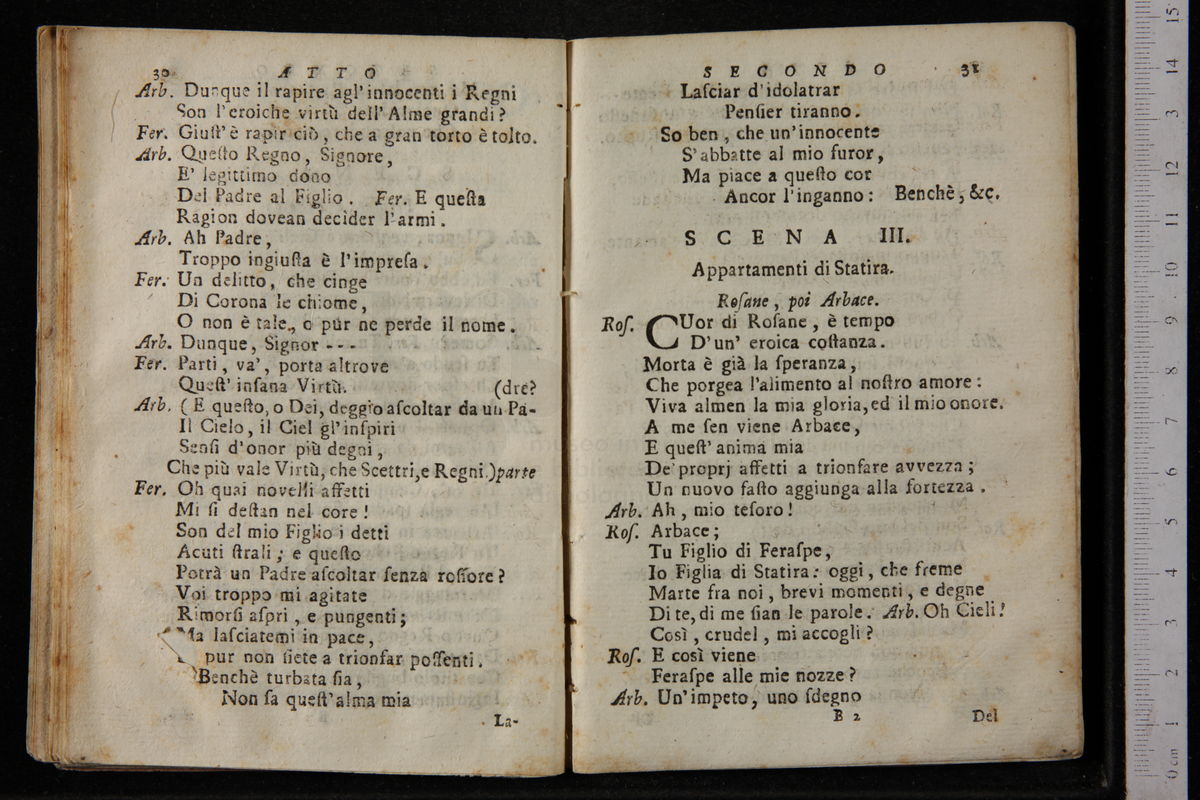 30 ATTO
Arb. Dunque il rapire agl'innocenti i Regni
Son l'eroiche virtù dell'Alme grandi?
Fer. Giuſt'è rapir ciò, che a gran torto è tolto.
Arb. Queſto Regno, Signore,
E' legittimo dono
Del Padre al Figlio. Fer. E queſta
Ragion dovean decider l'armi.
Arb. Ah Padre,
Troppo ingiuſta è l'impreſa.
Fer. Un delitto, che cinge
Di Corona le chiome,
O non è tale, o pur ne perde il nome.
Arb. Dunque, Signor ---
Fer. Parti, va', porta altrove
Queſt' inſana Virtù. (dre?
Arb. (E queſto, o Dei, deggio aſcoltar da un Pa-
Il Cielo, il Ciel gl'inſpiri
Senſi d'onor più degni,
Che più vale Virtù, che Scettri, e Regni.) parte
Fer. Oh quai novelli affetti
Mi ſi deſtan nel core!
Son del mio Figlio i detti
Acuti ſtrali; e queſto
Potrà un Padre aſcoltar ſenza roſſore?
Voi troppo mi agitate
Rimorſi aſpri, e pungenti;
Ma laſciatemi in pace,
pur non ſiete a trionfar poſſenti.
Benchè turbata ſia,
Non ſa queſt'alma mia
La-
SECONDO 31
Laſciar d'idolatrar
Penſier tiranno.
So ben, che un'innocente
S'abbatte al mio furor,
Ma piace a queſto cor
Ancor l'inganno: Benchè, &c.
SCENA III.
Appartamenti di Statira.
Roſane, poi Arbace.
Roſ. CUor di Roſane, è tempo
D'un' eroica coſtanza.
Morta è già la ſperanza,
Che porgea l'alimento al noſtro amore:
Viva almen la mia gloria, ed il mio onore.
A me ſen viene Arbace,
E queſt' anima mia
De' proprj affetti a trionfare avvezza;
Un nuovo faſto aggiunga alla fortezza.
Arb. Ah, mio teſoro!
Roſ. Arbace;
Tu Figlio di Feraſpe,
Io Figlia di Statira: oggi, che freme
Marte fra noi, brevi momenti, e degne
Di te, di me ſian le parole. Arb. Oh Cieli!
Così, crudel, mi accogli?
Roſ. E così viene
Feraſpe alle mie nozze?
Arb. Un'impeto, uno ſdegno
B 2 Del
0 cm 1 2 3 4 5 6 7 8 9 10 11 12 13 14 15